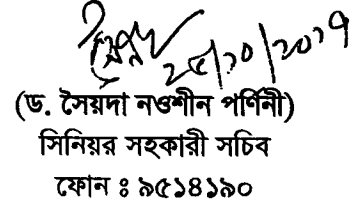 ২৫/১০/২০১৭
(ড. সৈয়দা নওশীন পর্ণিনী)
সিনিয়র সহকারী সচিব
ফোন ঃ ৯৫১৪১৯০